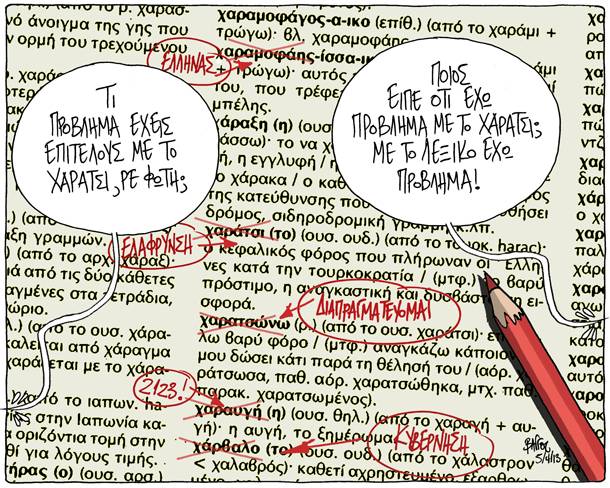 χαραμοφάγος-α-ικο (επίθ.) (από το χαράμι +
τρώγω)· βλ. χαραμοφάης
χαραμοφάης-ισσα-ικο
+ τρώγω)· αυτός
του, που τρέφε
μπέλης.
άραξη (η) (ουσ
άσσω)· το να χ
ή, η εγγλυφή / η
ο χάρακα / ο καθ
της κατεύθυνσης που
δρόμος, σιδηροδρομική γραμμή κ.λπ.
χαράτσι (το) (ουσ. ουδ.) (από το τουρκ. harac)·
ο κεφαλικός φόρος που πλήρωναν οι Έλλη
νες κατά την τουρκοκρατία / (μτφ.) η βαρύ
πρόστιμο, η αναγκαστική και δυσβάστ η ει-
σφορά.
χαρατσώνω (ρ.) (από το ουσ. χαράτσι)· επ
λω βαρύ φόρο / (μτφ.) αναγκάζω κάποιον
μου δώσει κάτι παρά τη θέλησή του / (αόρ. χα
ράτσωσα, παθ. αόρ. χαρατσώθηκα, μτχ. παθ.
παρακ. χαρατσωμένος).
χαραυγή (η) (ουσ. θηλ.) (από το χαραχή + αυ-
γή)· η αυγή, το ξημέρωμα
χάρβαλο (το) (ουσ. ουδ.) (από το χάλαστρον
< χαλαβρός)· καθετί αχρηστευμένο, εξαρθρω
από το ρ. χαρασ-
νό άνοιγμα της γης που
ν ορμή του τρεχούμενου
.) (από
αξη γραμμών.
.) (από το αρχ. χάραξ)·
μιά από τις δύο κάθετες
αγμένες στα τετράδια,
ώριο.
λ.) (από το ουσ. χάρα-
αλείται από χάραγμα
χαράζεται με το χάρα-
από το ιαπων. ha-
ς στην Ιαπωνία κα-
α οριζόντια τομή στην
θί για λόγους τιμής.
τήρας (ο) (ουσ. αρσ.)
ΤΙ
ΠΡΟΒΛΗΜΑ ΕΧΕΙΣ
ΕΠΙΤΕΛΟΥΣ ΜΕ ΤΟ
ΧΑΡΑΤΣΙ, ΡΕ ΦΩΤΗ;
ΠΟΙΟΣ
ΕΙΠΕ ΟΤΙ ΕΧΩ
ΠΡΟΒΛΗΜΑ ΜΕ ΤΟ ΧΑΡΑΤΣΙ;
ΜΕ ΤΟ ΛΕΞΙΚΟ ΕΧΩ
ΠΡΟΒΛΗΜΑ!
ΕΛΛΗΝΑΣ
ΕΛΑΦΡΥΝΣΗ
ΔΙΑΠΡΑΓΜΑΤΕΥΟΜΑΙ
2123!
ΚΥΒΕΡΝΗΣΗ
5/4/13